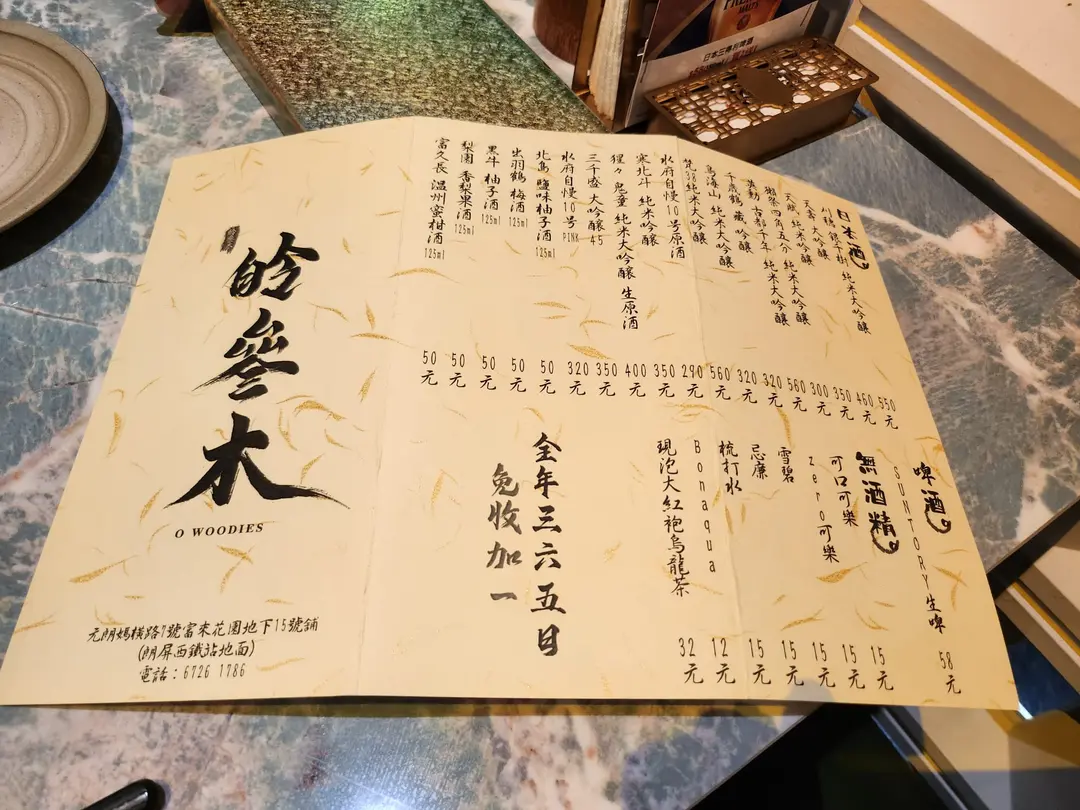 日本三得利啤酒
日本酒
川鶴 純米大吟釀 550元
天壽 大吟釀 460元
天賦 純米吟釀 350元
獺祭四角五分 純米大吟釀 300元
英勳 古都千年 純米大吟釀 560元
千歳鶴 蔵 吟釀 320元
鳥海山 純米大吟釀 320元
梵38純米大吟釀 560元
水府自慢10号原酒 290元
寒北斗 純米吟釀 350元
猩々 鬼童 純米大吟釀 生原酒 400元
三千盛 大吟釀45 350元
水府自慢10号 PINK 320元
北島 鹽味柚子酒 125ml 50元
出羽鶴 梅酒 125ml 50元
黑牛 柚子酒 125ml 50元
梨園 香梨果酒 125ml 50元
富久長 温州蜜柑酒 125ml 50元
啤酒
SUNTORY生啤 58元
無酒精
可口可樂 15元
zero可樂 15元
雪碧 15元
忌廉 15元
梳打水 15元
Bonaqua 12元
現泡大紅袍烏龍茶 32元
全年三六五日
免收加一
吟參木
O WOODIES
元朗媽橫路7號富來花園地下15號舖
(朗屏西鐵站地面)
電話：6726 1786